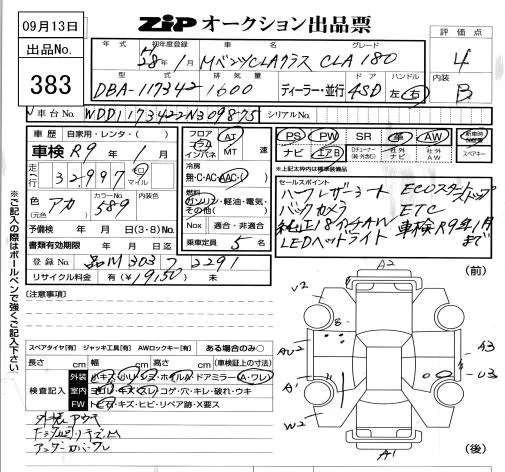 09月13日
出品No.
383
ZIP オークション出品票
評価点
4
内装
B
年式 初年度登録 車名 グレード
H28年1月 MベンツCLAクラス CLA180
型式 排気量 ドア ハンドル
DBA-117342 1600 ディーラー・並行 4SD 左・右
車台No. WDD1173422N309875 シリアルNo.
車歴 自家用・レンタ・( )
車検 R9年1月
走行 32,997 キロ マイル
色(元色) アカ カラーNo. 589 内装色
予備検 年 月 日(3・8)No.
書類有効期限 年 月 日迄
登録No. 品川 303 フ 3291
リサイクル料金 有(¥19150)未
フロア コラム インパネ AT MT 速
冷房
無・C・AC・AAC
燃料
ガソリン・軽油・電気・その他( )
Nox 適合・非適合
乗車定員 5 名
PS PW SR 革 AW
ナビ エアB 社外ナビ 社外AW スペアキー
※上記太枠内は横須標準装備
セールスポイント
ハーフレザーシート ECOスタートストップ
バックカメラ ETC
純正18インチAW 車検R9年1月まで
LEDヘッドライト
[注意事項]
スペアタイヤ[有] ジャッキ工具[有] AWロックキー[有] ある場合のみ○
長さ cm 幅 cm 高さ cm (車検証上の寸法)
検査記入
外装 小キズ・小リペ・ホイルキズ・ドアミラー(A・ワレ)
室内 ヨゴレ・キズ・スレ・コゲ・穴・キレ・破れ・ウキ
FW トビ石・キズ・ヒビ・リペア跡・X要ス
アンダーカバーワレ
※ご記入の際はボールペンで強くご記入下さい
(前)
A2
U2
B
AU2
A1
W2
A3
U3
A1
(後)